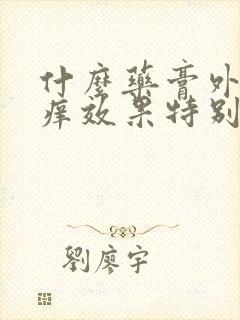 什麼藥膏外
痒效果特别
劉廖宇